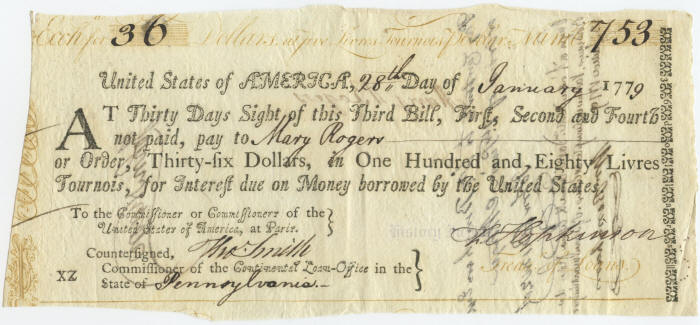 Exch. for 36 Dollars, at five Livres Tournois p Dollar, Numb. 753
United States of AMERICA, 28th Day of January 1779
AT Thirty Days Sight of this Third Bill, First, Second and Fourth
not paid, pay to Mary Rogers
or Order, Thirty-six Dollars, in One Hundred and Eighty Livres
Tournois, for Interest due on Money borrowed by the United States.
To the Commissioner or Commissioners of the
United States of America, at Paris.
F. Hopkinson
Countersigned, Tho. Smith
Treas. of Loans.
XZ Commissioner of the Continental Loan-Office in the
State of Pennsylvania.